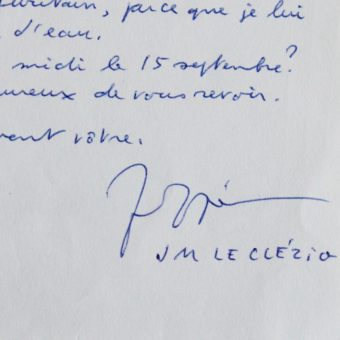 , parce que je lui
d'eau.
midi le 15 septembre?
ureux de vous revoir.
ment vôtre.
JM LE CLÉZIO